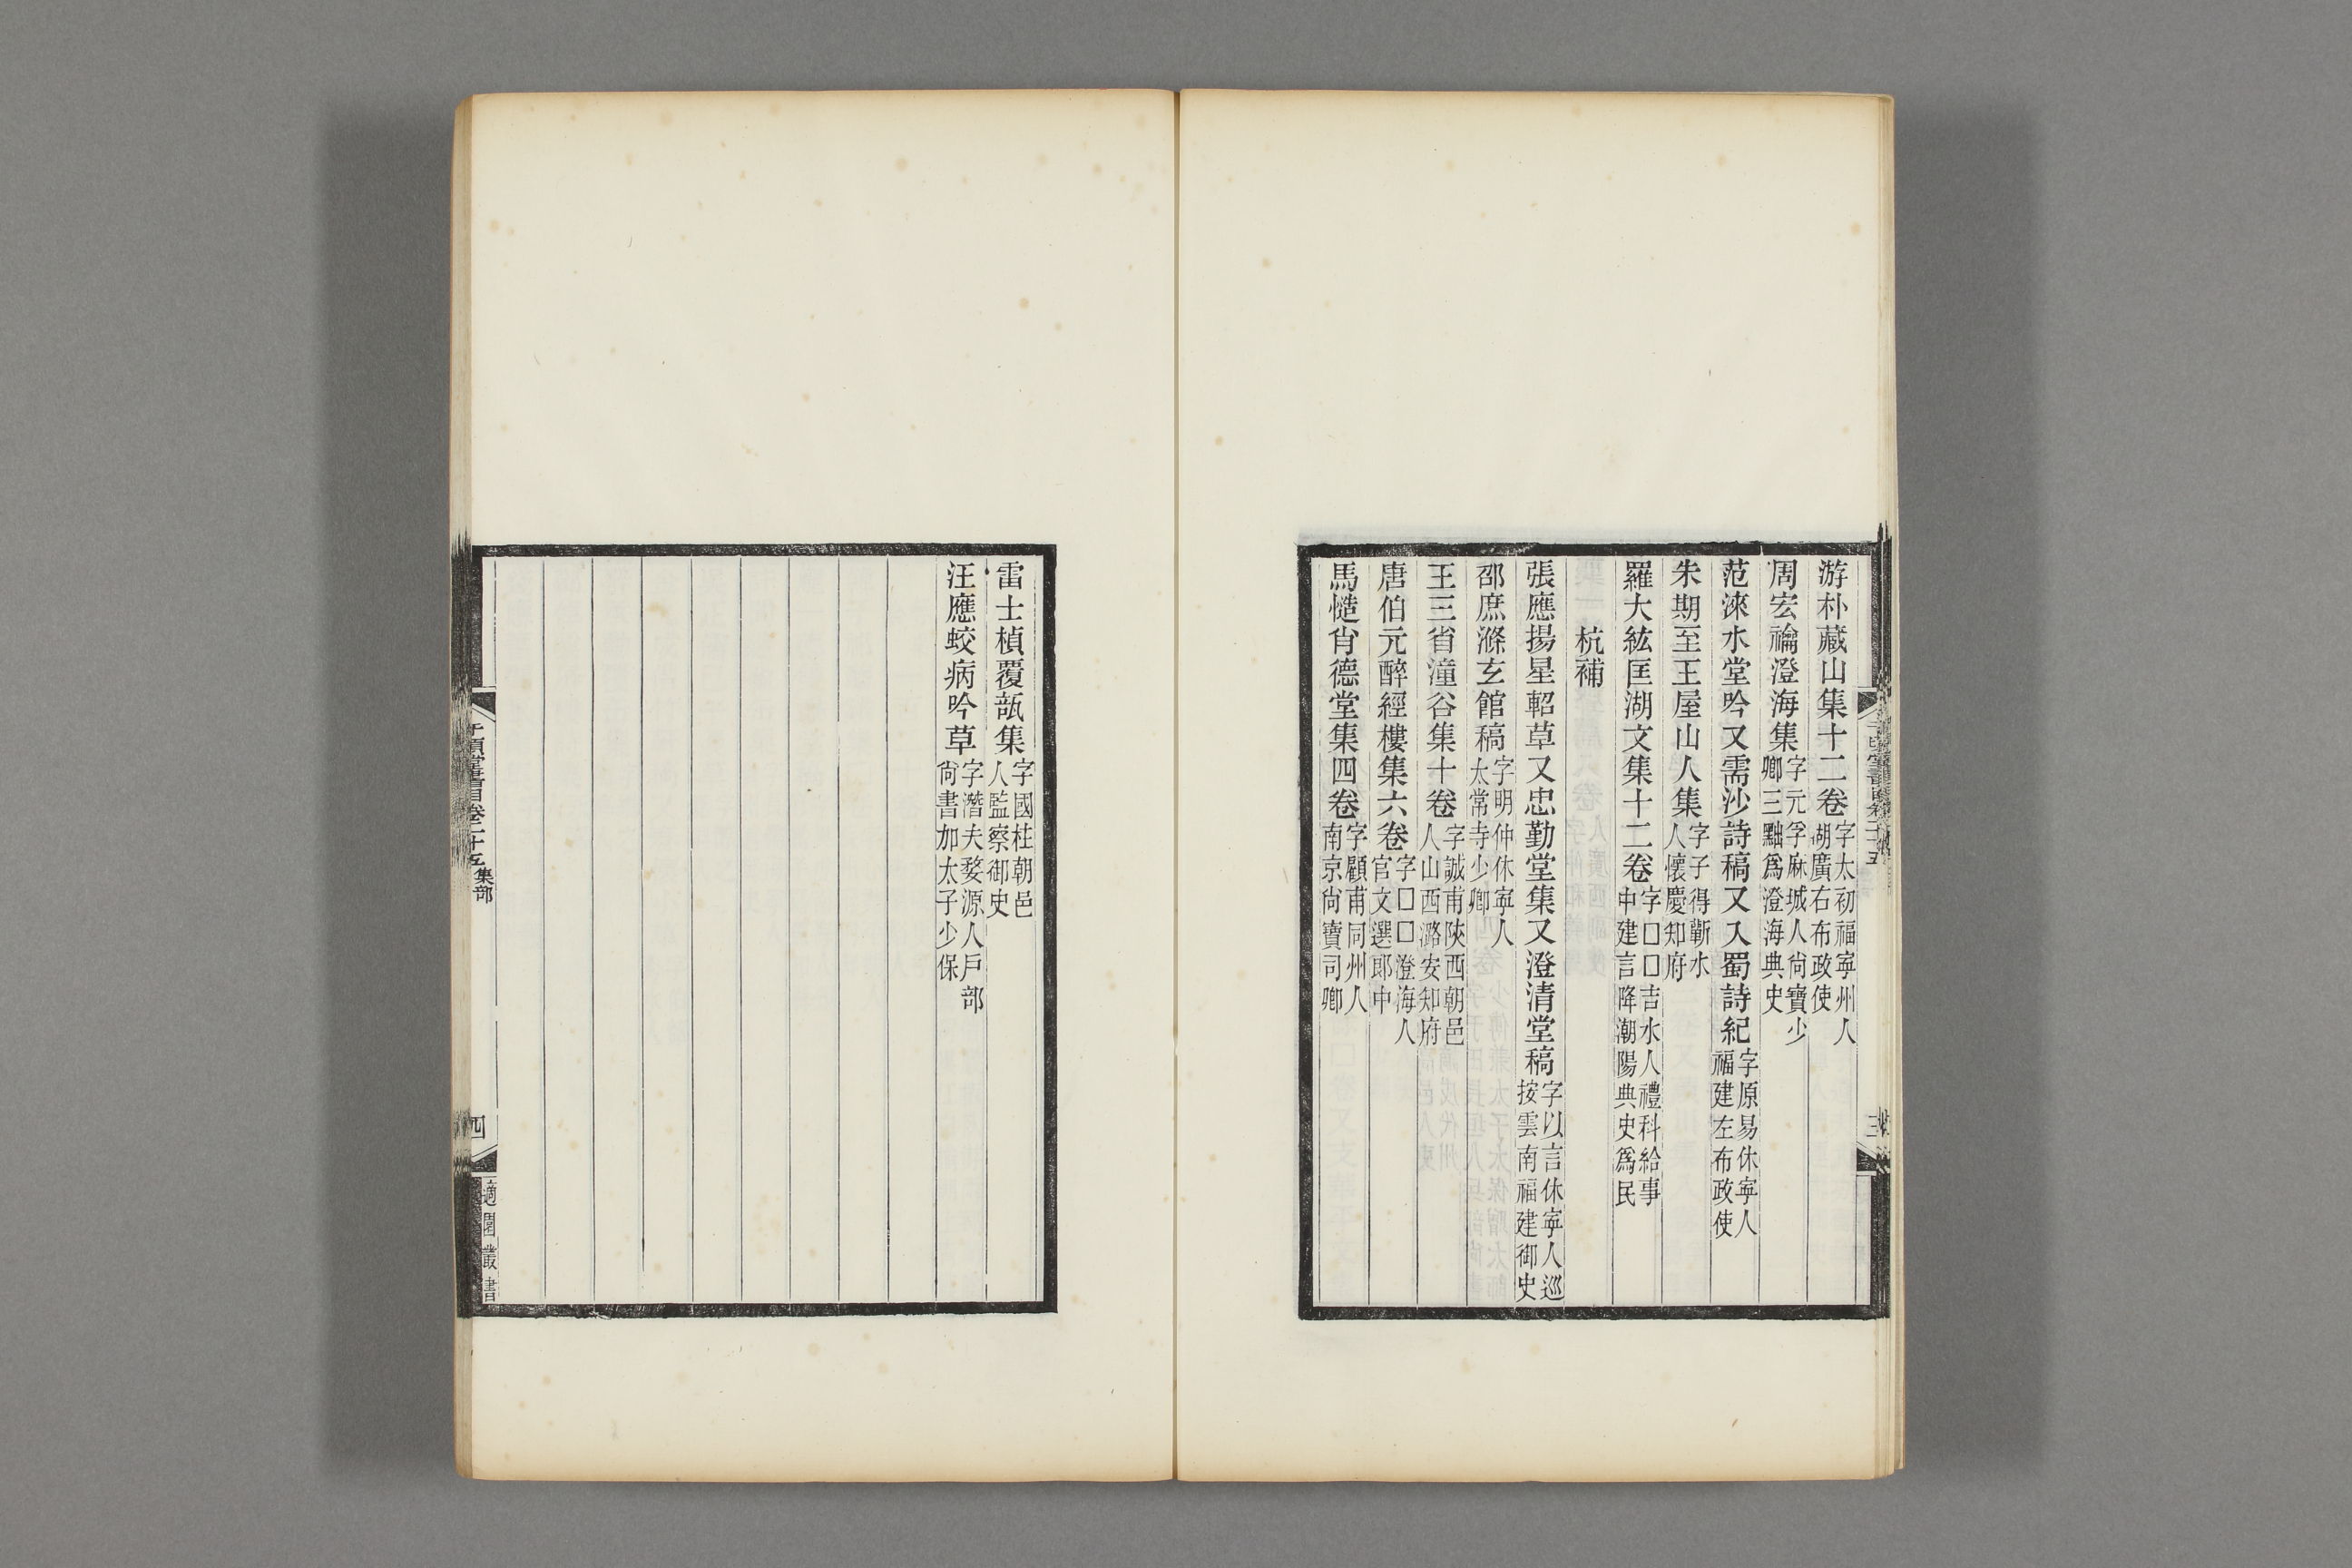 游朴藏山集十二卷字太初福寧州人湖廣右布政使
周宏禴澄海集字元孚麻城人尙寶少卿三黜爲澄海典史
范淶水堂吟又需沙詩稿又入蜀詩紀字原易休寧人福建左布政使
朱期至王屋山人集字子得蘄水人懷慶知府
羅大紘匡湖文集十二卷字□□吉水人禮科給事中建言降潮陽典史爲民
杭補
張應揚星軺草又忠勤堂集又澄清堂稿字以言休寧人巡按雲南福建御史
邵庶滌玄館稿字明仲休寧人太常寺少卿
王三省潼谷集十卷字誠甫陝西朝邑人山西潞安知府
唐伯元醉經樓集六卷字□□澄海人官文選郎中
馬慥肯德堂集四卷字顧甫同州人南京尙寶司卿
雷士楨覆瓿集字國柱朝邑人監察御史
汪應蛟病吟草字潛夫婺源人戶部尙書加太子少保
千頃堂書目卷二十五 集部
四
適園叢書